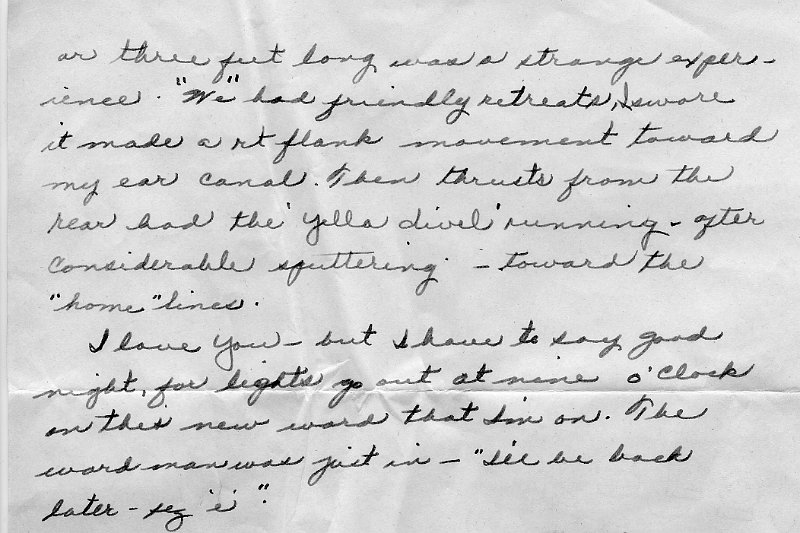 or three feet long was a strange exper-
ience. "We" had friendly retreats, I swore
it made a rt flank movement toward
my ear canal. Then thrusts from the
rear had the 'yella divel' running - after
considerable sputtering - toward the
"home" lines.
I love you - but I have to say good
night, for lights go out at nine o'clock
on this new ward that I'm on. The
ward man was just in - "I'll be back
later - sez 'e'".